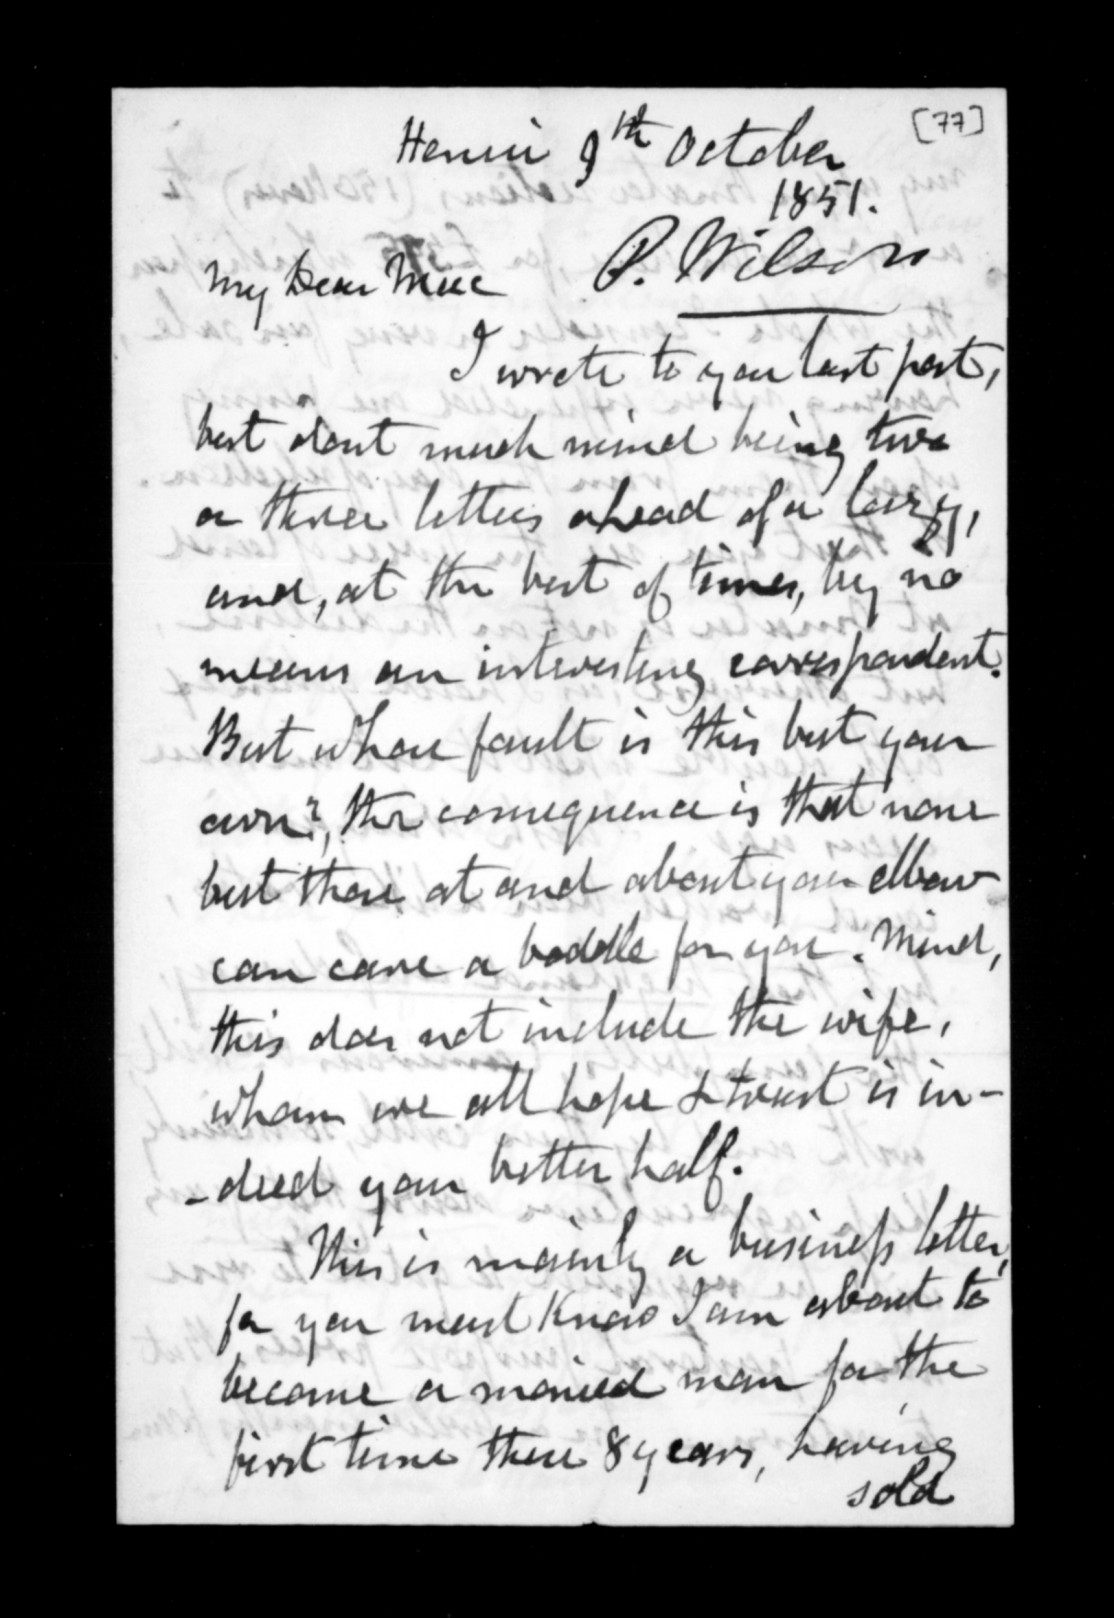 [77]
9th October
1851.
P. Wilson
My Dear Mac
I wrote to you last post,
but dont much mind being two
or three letters ahead of a lazy,
and, at the best of times, by no
means an interesting correspondent.
But whose fault is this but your
own?, the consequence is that none
but those at and about your elbow
can care a boddle for you. Mind,
this does not include the wife,
whom we all hope & trust is in-
-deed your better half.
This is mainly a business letter,
for you must know I am about to
become a monied man for the
first time these 8 years, having
sold